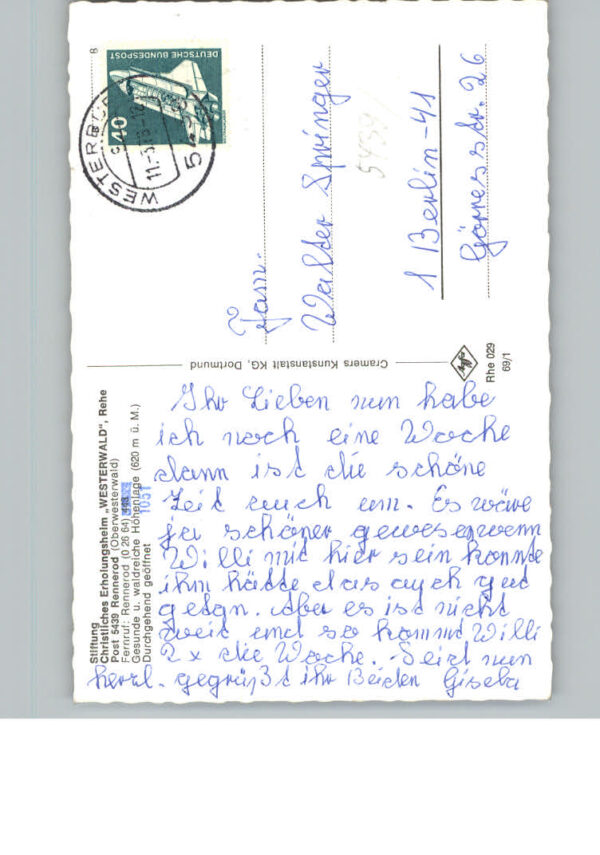 Stiftung
Christliches Erholungsheim „WESTERWALD", Rehe
Post 5439 Rennerod (Oberwesterwald)
Fernruf: Rennerod (0 26 64)
1051
Gesunde u. waldreiche Höhenlage (620 m ü. M.)
Durchgehend geöffnet
Ihr Lieben nun habe
ich noch eine Woche
dann ist die schöne
Zeit auch um. Es wäre
ja schöner gewesen wenn
Willi mit hier sein konnte
ihm hätte das auch gut
getan. Aber es ist nicht
weit und so kommt Willi
2 x die Woche. Seid nun
herzl. gegrüßt ihr Beiden Gisela
Cramers Kunstanstalt KG, Dortmund
Rhe 029
69/1
DEUTSCHE BUNDESPOST
40
B
WESTERBURG
11.-5.
Fam.
Walter Springer
5439
1 Berlin-41
Görresstr. 26